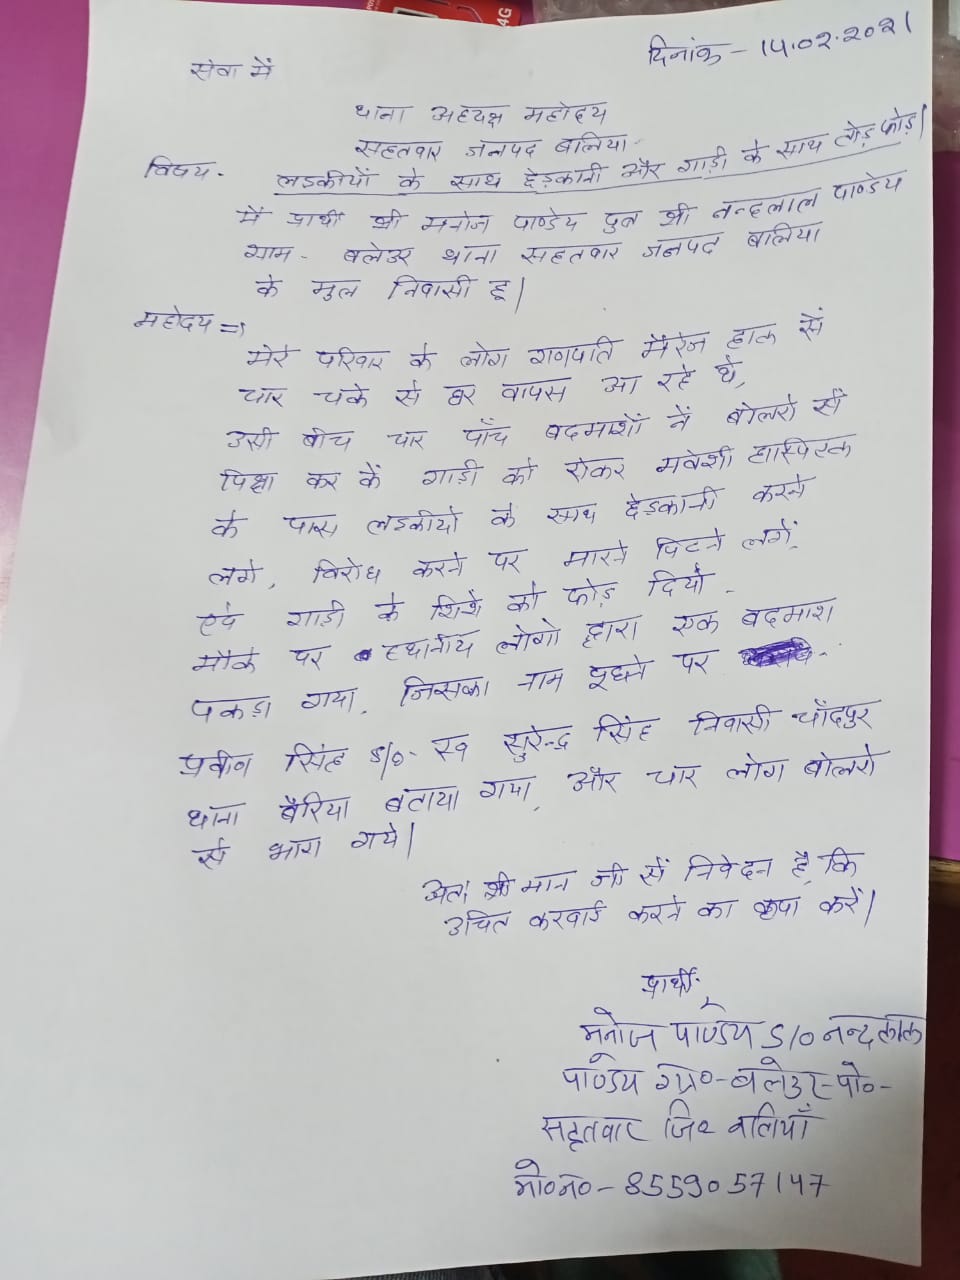 4G
दिनांक - 14.02.2021
सेवा में
थाना अध्यक्ष महोदय
सहतवार जनपद बालिया
विषय - लडकीयों के साथ छेड़कानी और गाड़ी के साथ तोड़ फोड़।
मैं प्रार्थी श्री मनोज पाण्डेय पुत्र श्री नन्दलाल पाण्डेय
ग्राम - बलेउर थाना सहतवार जनपद बालिया
के मुल निवासी हू।
महोदय =>
मेरे परिवार के लोग गणपति मैरेज हाल सें
चार चके से घर वापस आ रहे थे,
उसी बीच चार पाँच बदमाशों नें बोलेरो सें
पिक्षा कर कें गाड़ी को रोकर मवेशी हास्पिटल
के पास लडकीयो के साथ छेड़कानी करने
लगे, विरोध करने पर मारने पिटने लगें,
एवं गाडी के शिशे को फोड़ दियो -
मौके पर स्थानीय लोगो द्वारा एक बदमाश
पकड़ा गया, जिसका नाम पूछने पर
प्रवीण सिंह s/o- स्व सुरेन्द्र सिंह निवासी चाँदपुर
थाना बैरिया बताया गया, और चार लोग बोलेरो
सें भाग गये।
अतः श्री मान जी सें निवेदन है, कि
उचित करवाई करने का कृपा करें।
प्रार्थी
मनोज पाण्डेय S/O नन्दलाल
पाण्डेय ग्रा०-बलेउर-पो०-
सहतवार जि० बलियाँ
मो०न० - 8559057147